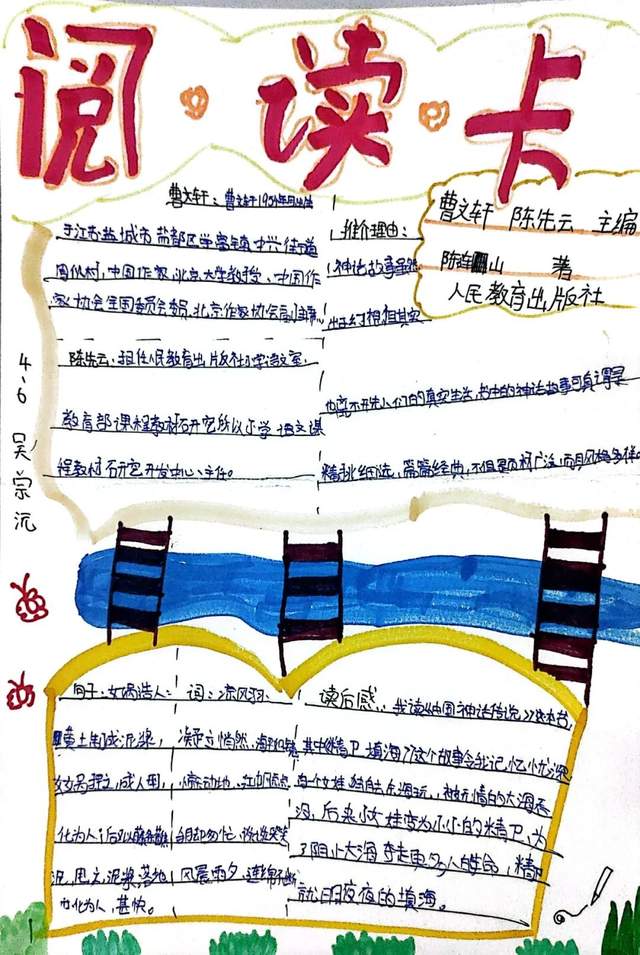 阅·读卡
曹文轩 陈先云 主编
陈连山 著
人民教育出版社
曹文轩：曹文轩1954年
于江苏盐城市盐都区学富镇中兴街道
周伙村，中国作家，北京大学教授、中国作
家协会全国委员会委员，北京作家协会副主席。
陈先云：担任人民教育出版社小学语文室、
教育部课程教材研究所小学语文课
程教材研究开发中心主任。
推介理由：
神话故事虽然
出于幻想但其实
也离不开先人们的真实生活，书中的神话故事可真谓是
精挑细选，篇篇经典，不但
4、6 吴宗沅
句子：女娲造人：
黄土制成泥浆，
化为人；后又
泥，甩去，泥浆落地
力化为人，甚快。
词：凉风习习
惊天动地、
连绵不断
读后感：我读《中国神话传说》这本书，
其中《精卫填海》这个故事令我记忆尤深，
有个女娃独自去东海玩，被无情的大海吞
没，后来小女娃变为小小的精卫，为
了阻止大海夺走更多人的生命，精卫
就日日夜夜的填海。